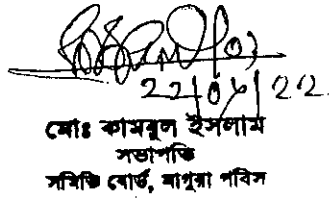 22/06/22
মোঃ কামরুল ইসলাম
সভাপতি
সমিতি বোর্ড, মাগুরা পবিস